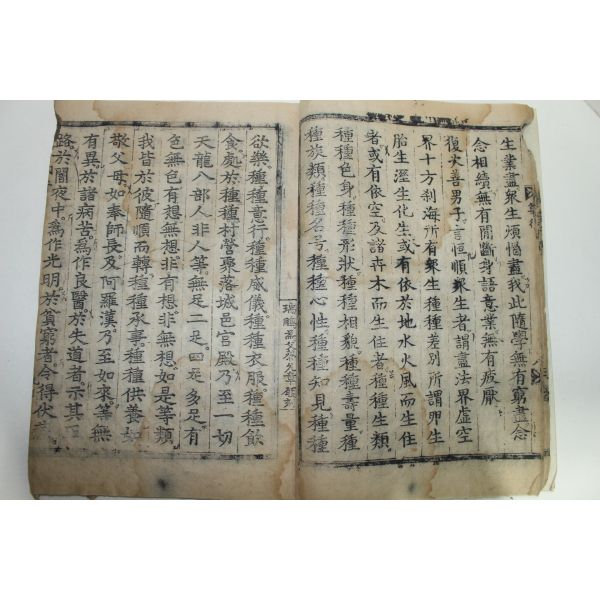 生業盡衆生煩惱盡我此隨學無有窮盡念
念相續無有間斷身語意業無有疲厭
復次善男子言恒順衆生者謂盡法界虛空
界十方刹海所有衆生種種差別所謂卵生
胎生濕生化生或有依於地水火風而生住
者或有依空及諸卉木而生住者種種生類
種種色身種種形狀種種相貌種種壽量種
種族類種種名号種種心性種種知見種種
欲樂種種意行種種威儀種種衣服種種飮
食處於種種村營聚落城邑官殿乃至一切
天龍八部人非人等無足二足四足多足有
色無色有想無想非有想非無想如是等類
我皆於彼隨順而轉種種承事種種供養如
敬父母如奉師長及阿羅漢乃至如來等無
有異於諸病苦爲作良醫於失道者示其正
路於闇夜中爲作光明於貧窮者令得伏